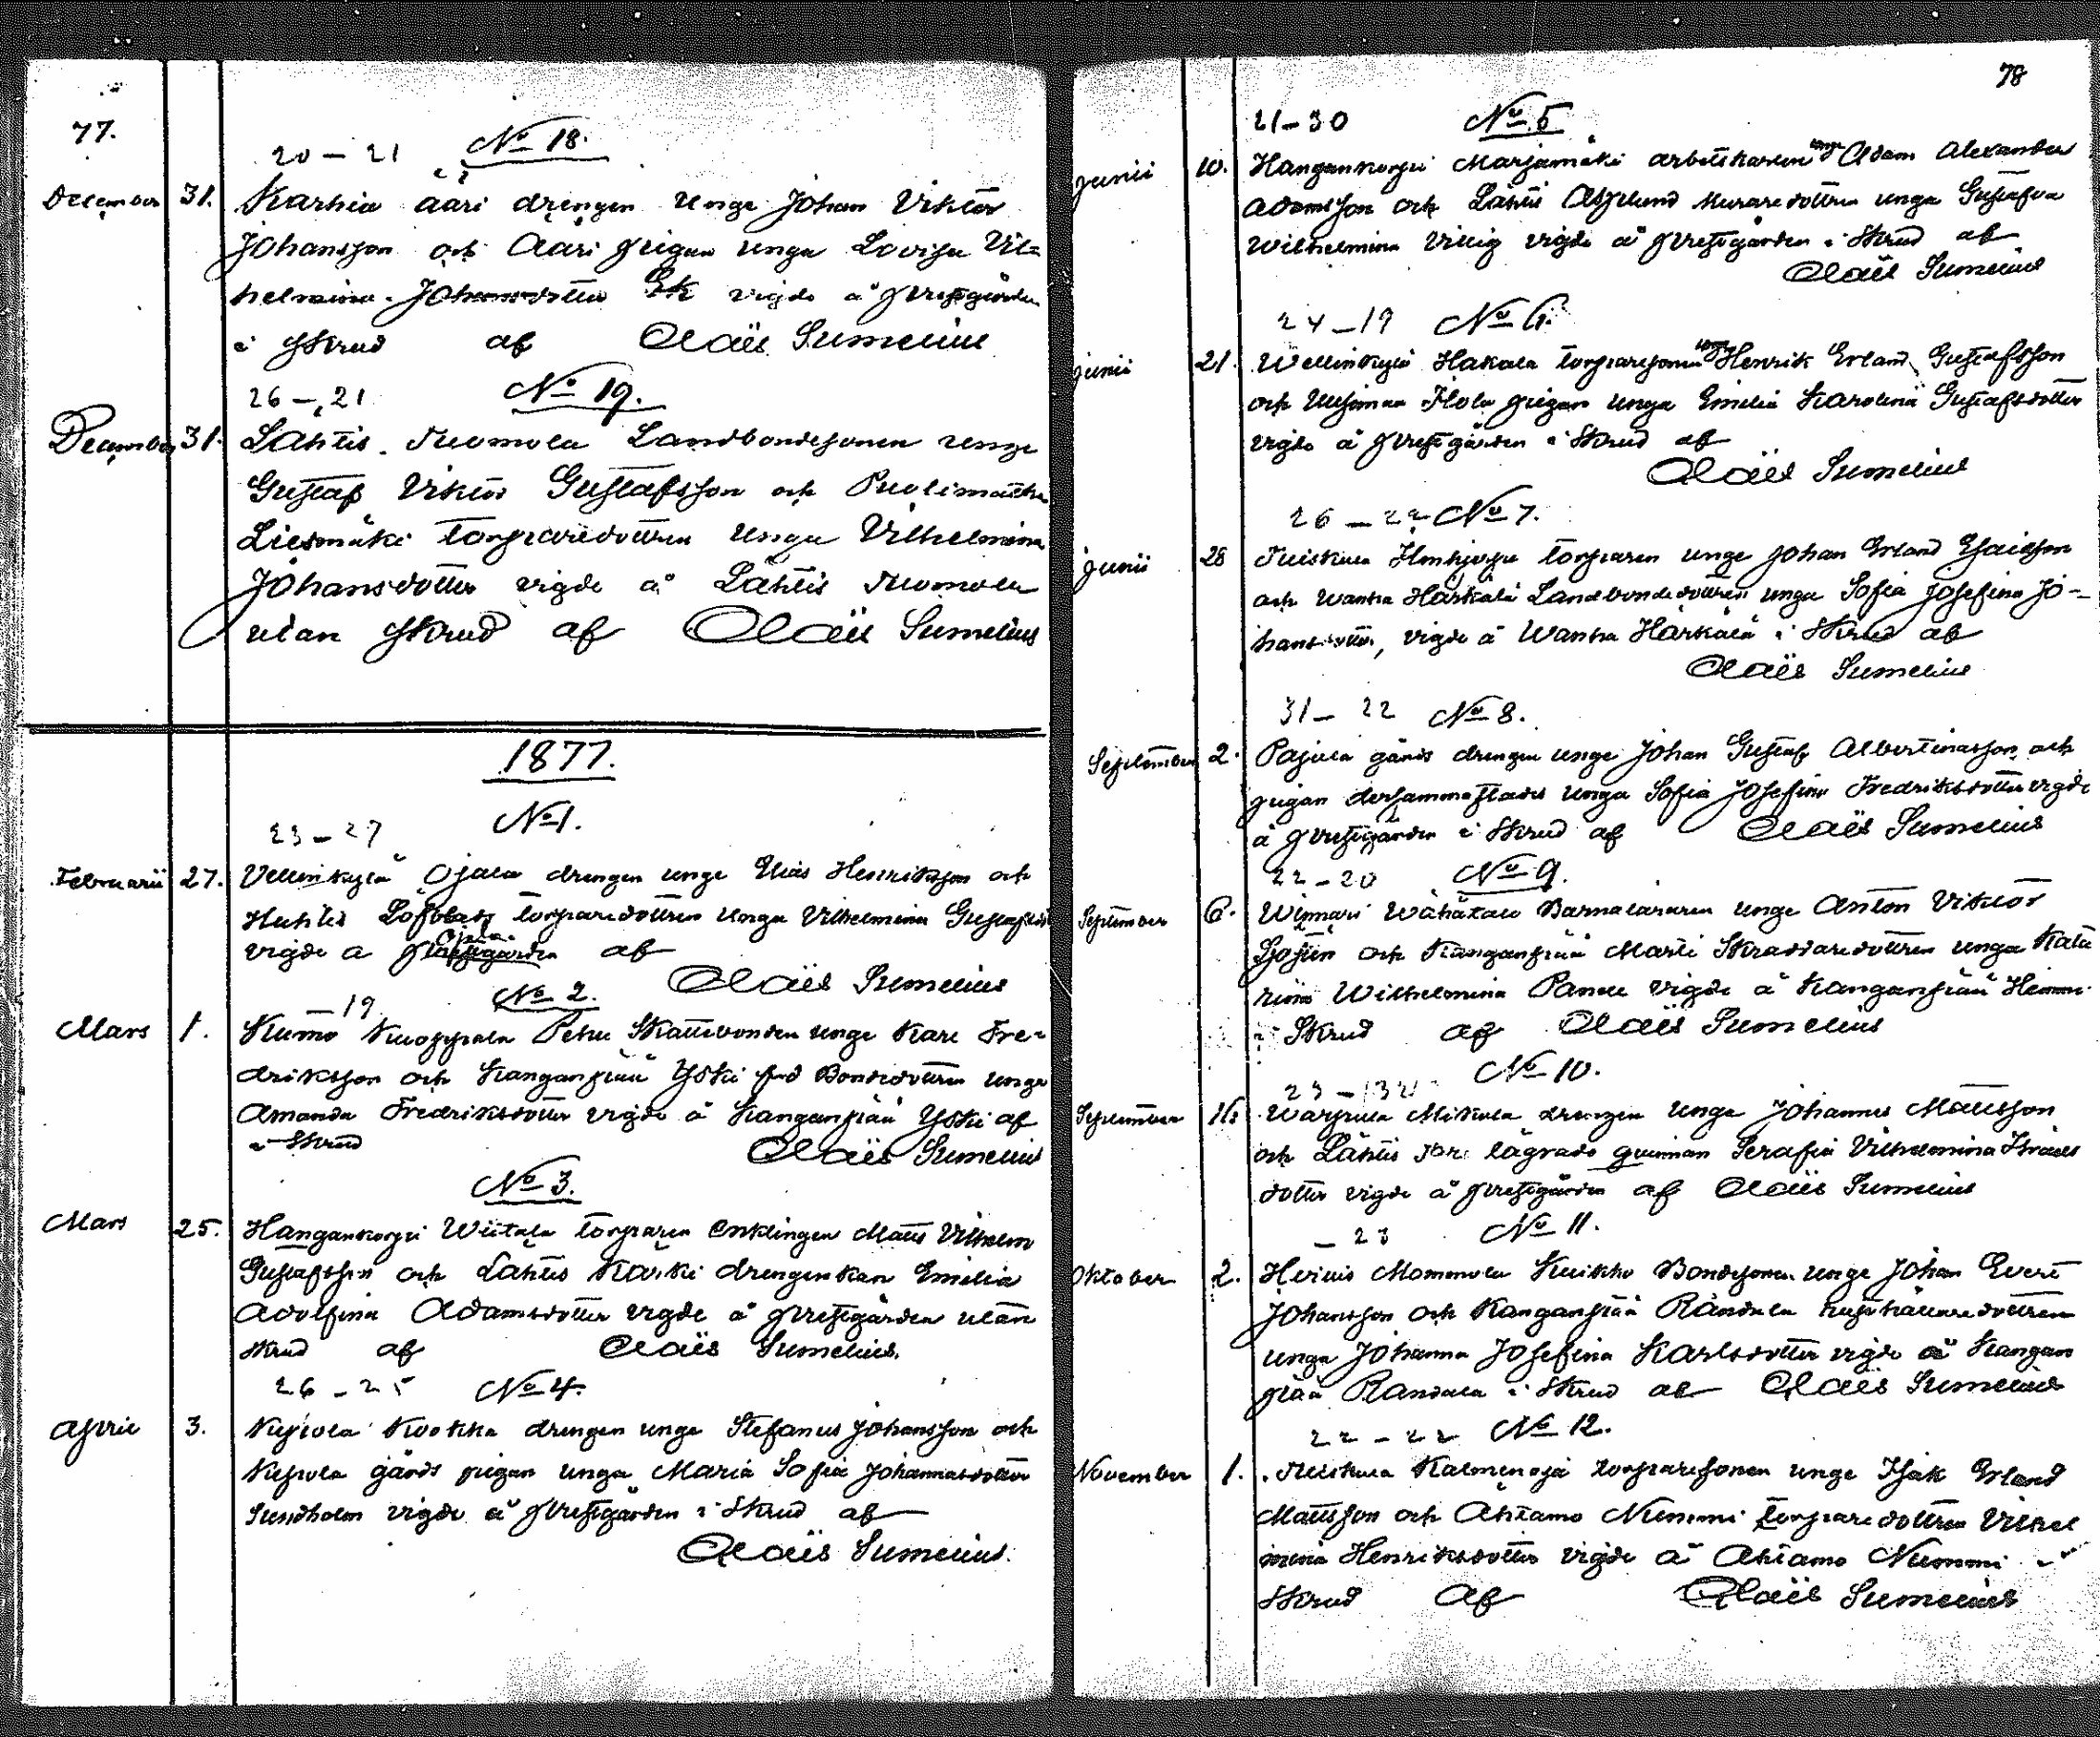 77.
20 – 21 No 18.
December 31. Karhia Ääri drengen unge Johan Viktor
Johansson och Ääri pigan unga Lovisa Vil=
helmina Johansdotter Ek vigde å prestgården
i skrud af Claës Sumelius
26 – 21 No 19.
December 31. Lahtis Tuomola Landbondesonen unge
Gustaf Viktor Gustafsson och Puolimatka
Liesmäki torparedottren unga Vilhelmina
Johansdotter vigde å Lahtis Tuomola
utan skrud af Claës Sumelius
1877.
No 1.
23 – 27
Februarii 27. Vellinkylä Ojala drengen unge Elias Henriksson och
Huhtis Löfblads torparedottren unga Vilhelmina Gustafsdr
vigde a Ojala prestgården af
Claës Sumelius
– 19 No 2.
Mars 1. Kumo Kuoppala Pehu Skattebonden unge Karl Fre=
driksson och Kanganpää Yski fd Bondedottren unga
Amanda Fredriksdotter vigde å Kanganpää Yski af
i Skrud Claës Sumelius
No 3.
Mars 25. Hangankorpi Wiitala torparen Enklingen Matts Vilhelm
Gustafsson och Lahtis Kärki drengenkan Emilia
Adolfina Adamsdotter vigde å prestgården utan
skrud af Claës Sumelius.
26 – 25 No 4.
April 3. Kujvola Kvokka drengen unge Stefanus Johansson och
gårds pigan unga Maria Sofia Johannasdotter
Sundholm vigde å prestgården i Skrud af
Claës Sumelius.
78
21 – 30 No 5
junii 10. Hangankorpi Marjamäki arbetskarlen unge Adam Alexander
Adamsson och Lahtis Asplund Muraredottren unga Gustafva
Wilhelmina Villig vigde å prestgården i Skrud af
Claës Sumelius
24 – 19 No 6.
junii 21. Wellinkylä Hakala torparesonen unge Henrik Erland Gustafsson
och Uusimaa Ilola pigan unga Emilia Karolina Gustafsdotter
vigde å prestgården i Skrud af
Claës Sumelius
26 – 22 No 7.
junii 28 Tuiskula Honkjoja torparen unge Johan Erland Esaiasson
och Wanha Härkälä Landbondedottren unga Sofia Josefina Jo=
hansdotter, vigde å Wanha Härkälä i Skrud af
Claës Sumelius
31 – 22 No 8.
September 2. Pajula gårds drengen unge Johan Gustaf Albertinasson och
pigan dersammastädes unga Sofia Josefina Fredriksdotter vigde
å prestgården i Skrud af Claës Sumelius
22 – 20 No 9.
September 6. Winnari Wähätalo Barnaläraren unge Anton Viktor
Sjösten och Kanganpää Marti Skräddaredottren unga Kata
rina Wilhelmina Panell vigde å Kanganpää Hemm.
i Skrud af Claës Sumelius
No 10.
September 16 Warpula Mikola drengen unge Johannes Mattsson
och Lahtis lägrade qvinnan Serafia Vilhelmina Israels
dotter vigde å prestgården af Claës Sumelius
– 23 No 11.
Oktober 2. Heinis Mommola Kuikko Bondesonen unge Johan Evert
Johansson och Kanganpää Rändälä hushållaredottren
unga Johanna Josefina Karlsdotter vigde å Kangan
pää Randala i Skrud af Claës Sumelius
22 – 22 No 12.
November 1. Tuiskula Kalmenoja torparesonen unge Isak Erland
Mattsson och Ahtamo Nummi torparedottren Vilhel
mina Henriksdotter vigde å Ahtamo Nummi i
Skrud af Claës Sumelius